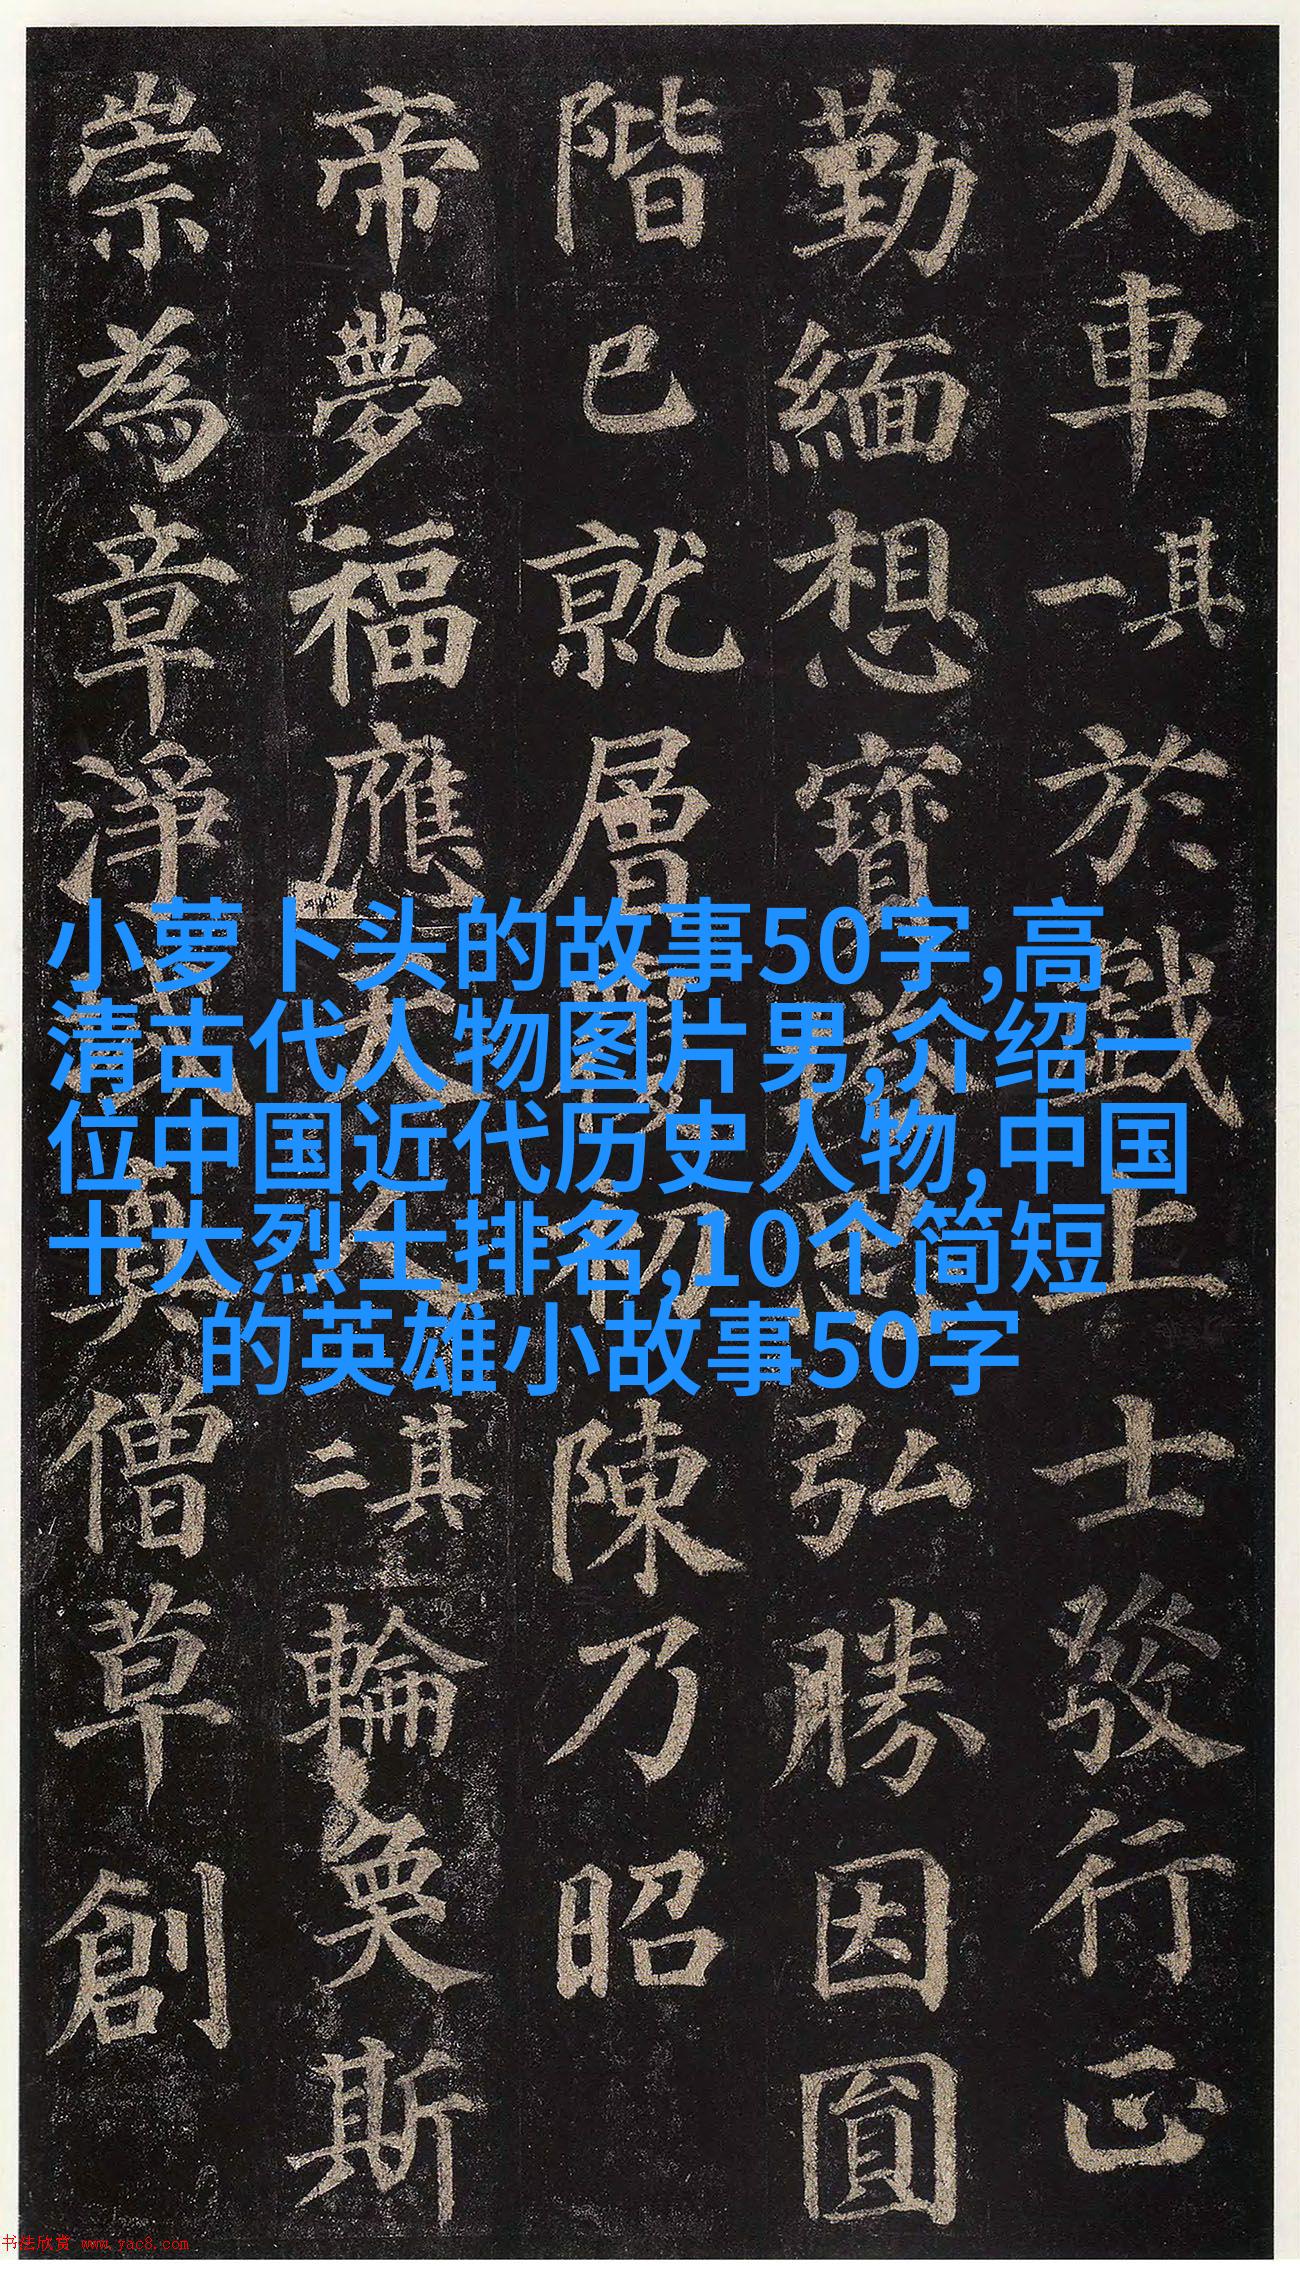 大車其一於戲上士發行正
勤緬想寶塔思弘勝因圓
階已就層覆初陳乃昭
帝夢福應天人其二輪奐斯
崇為章淨域真僧草創
小萝卜头的故事50字,高
清古代人物图片男,介绍一
位中国近代历史人物,中国
十大烈士排名,10个简短
的英雄小故事50字
书法欣赏 www.yac8.com